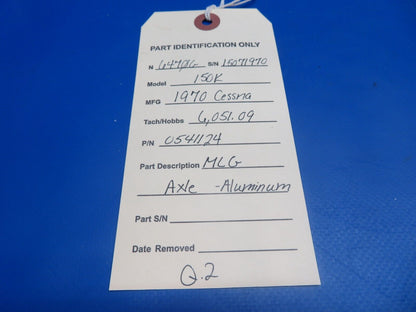 PART IDENTIFICATION ONLY
N 6470G S/N 15071970
Model 150K
MFG 1970 Cessna
Tach/Hobbs 6,051.09
P/N 0541124
Part Description MLG
Axle - Aluminum
Part S/N
Date Removed
Q.2